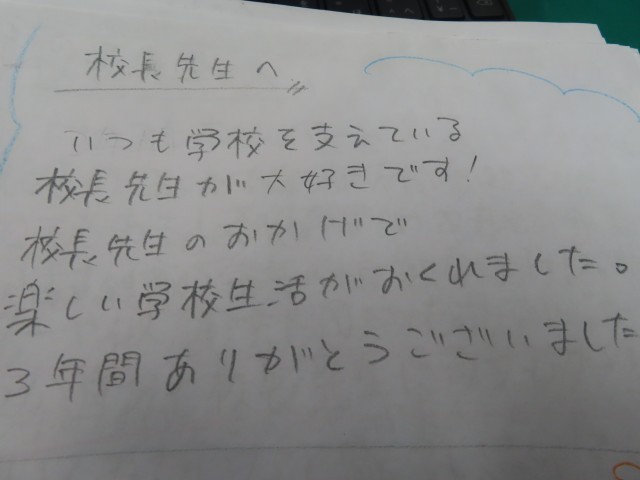 校長先生へ
いつも学校を支えている
校長先生が大好きです!
校長先生のおかげで
楽しい学校生活がおくれました。
3年間ありがとうございました